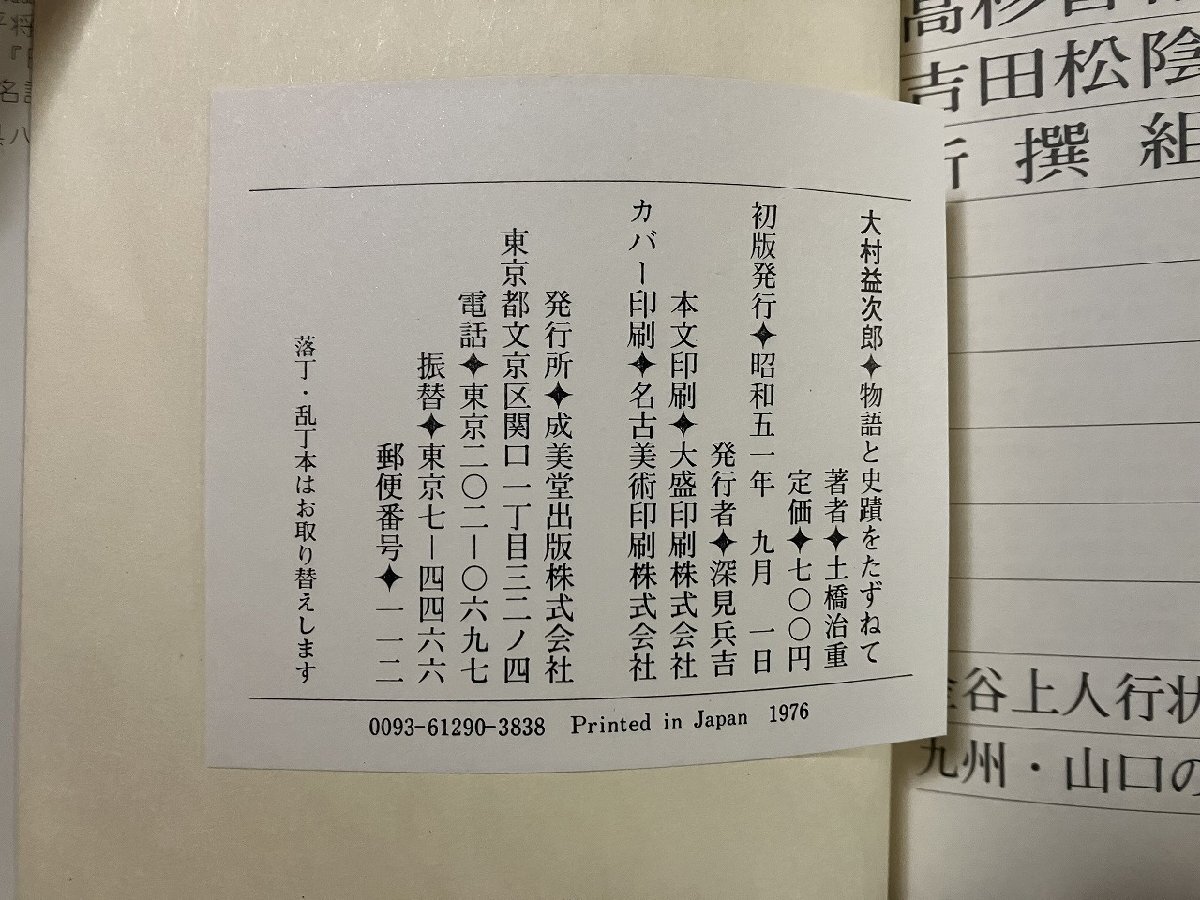 大村益次郎✦物語と史蹟をたずねて
著者✦土橋治重
定価✦七〇〇円
初版発行✦昭和五一年 九月 一日
発行者✦深見兵吉
本文印刷✦大盛印刷株式会社
カバー印刷✦名古美術印刷株式会社
発行所✦成美堂出版株式会社
東京都文京区関口一丁目三二ノ四
電話✦東京二〇二―〇六九七
振替✦東京七―四四六六
郵便番号✦一一二
落丁・乱丁本はお取り替えします
0093-61290-3838 Printed in Japan 1976
高杉
吉田松陰
撰組
谷上人行状
九州・山口の